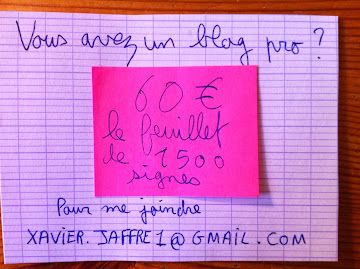 Vous avez un blog pro ?
60 €
le feuillet
de 1500
signes
Pour me joindre
XAVIER.JAFFRE1@GMAIL.COM